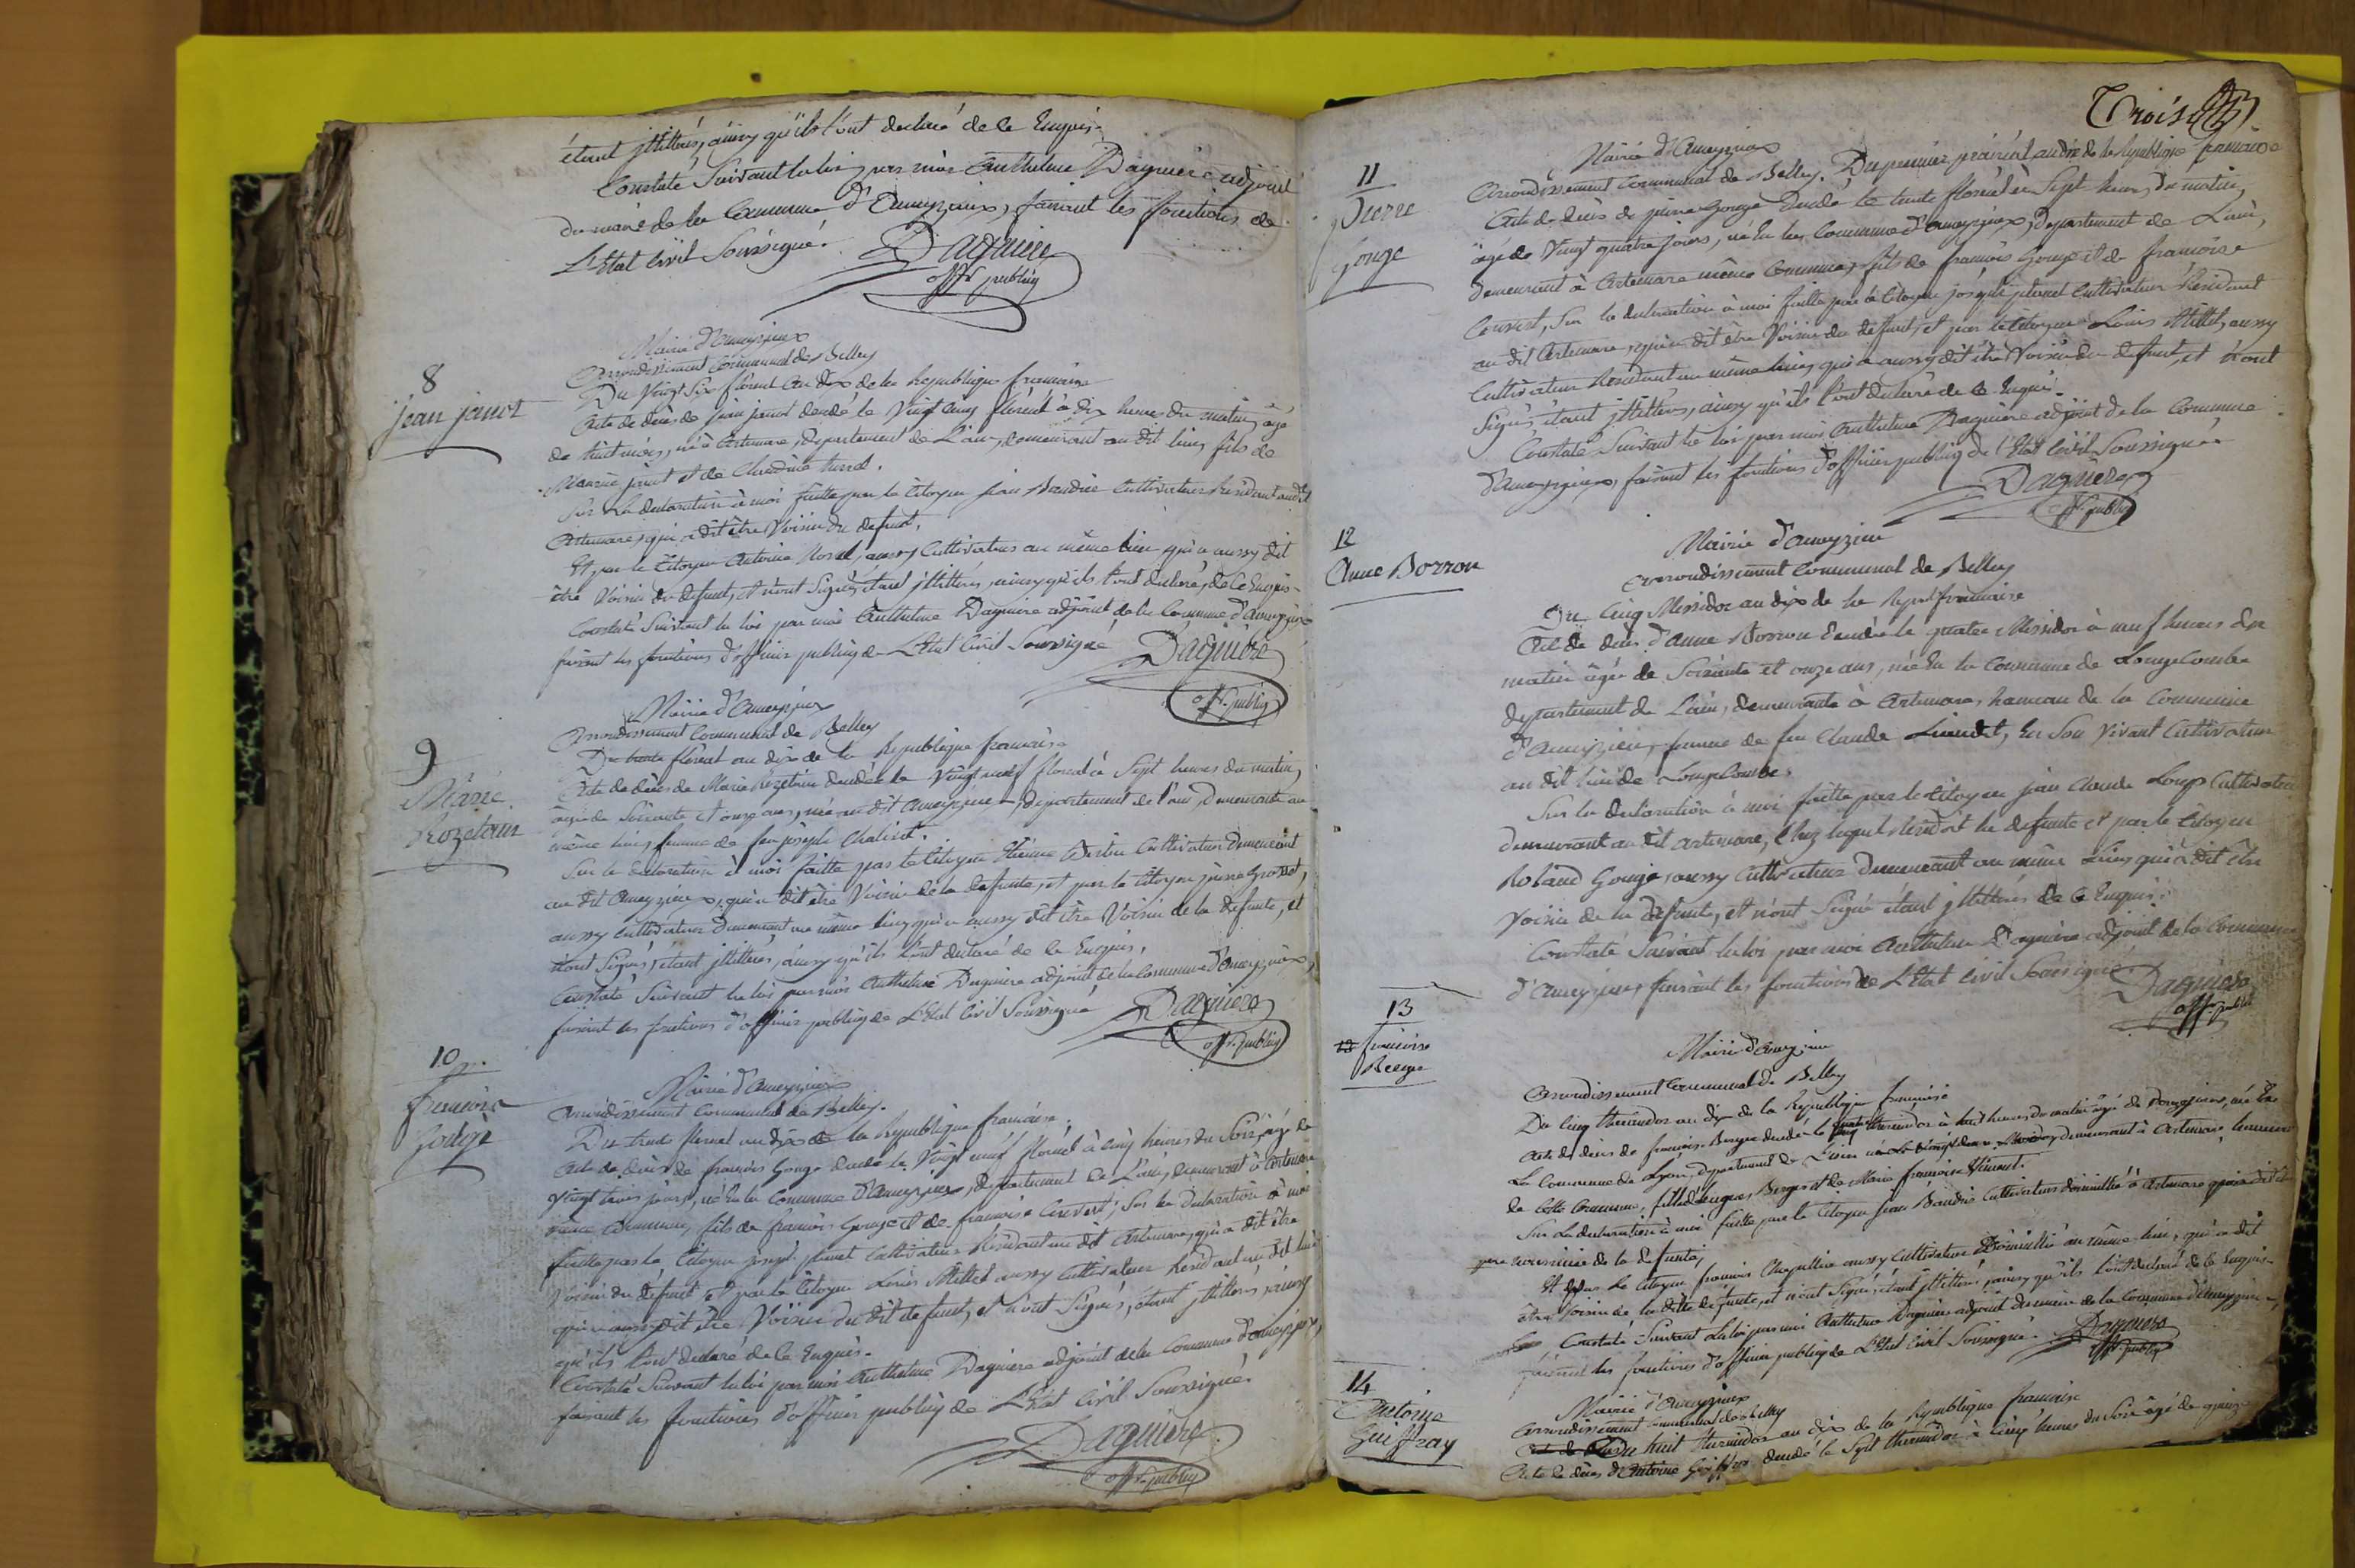 étant jllittérés, ainsy qu'ils l'ont declaré de ce Enquis.
Constaté Suivant la loi, par moi Anthelme Daguiere adjoint
du maire de la Commune d'Ameyzieux, faisant les fonctions de
L'Etat Civil Soussigné.
Daguiere
off. publiq
8
jean janot
Mairie d'Ameyzieux
Arrondissement Communal de Belley
Du Vingt Six floreal an dix de la Republique francaise
Acte de decès de jean janot decedé le Vingt cinq floreal à dix heures du matin, agé
de huit mois, né à Artemare, departement de L'ain, demeurant au dit lieu, fils de
janot et de Claudine
Sur La declaration à moi faitte par le Citoyen jean Baudrie Cultivateur Residant au dit
Artemare, qui a dit être Voisin du defunt.
Et par le Citoyen Antoine aussy Cultivateur au même lieu qui a aussy dit
être Voisin du defunt, et n'ont Signés, étant jllittérés, ainsy qu'ils l'ont declaré, de ce Enquis.
Constaté Suivant la loi par moi Anthelme Daguiere adjoint de la Commune d'Ameyzieux
faisant les fonctions d'officier publiq de L'Etat Civil Soussigné
Daguiere
off. publiq
9
Marie
Rozetain
Mairie d'Ameyzieux
Arrondissement Communal de Belley
Du trente floreal an dix de la Republique francaise
Acte de decès de Marie Rozetain decedée le Vingt neuf floreal à Sept heures du matin,
agée de Soixante et onze ans, née au dit Ameyzieux, departement de l'ain, demeurante au
même lieu, femme de feu joseph
Sur la declaration à moi faitte par le Citoyen Etienne Cultivateur Demeurant
au dit Ameyzieux, qui a dit être Voisin de la defunte, et par le Citoyen pierre Grosset,
aussy Cultivateur demeurant au même lieu, qui a aussy dit être Voisin de la defunte, et
n'ont Signés, étant jllittérés, ainsy qu'ils l'ont declaré de ce Enquis.
Constaté Suivant la loi par moi Anthelme Daguiere adjoint de la Commune d'Ameyzieux,
faisant les fonctions d'officier publiq de L'Etat Civil Soussigné
Daguiere
off. publiq
10
francois
Gouge
Mairie d'Ameyzieux
Arrondissement Communal de Belley.
Du trente floreal an dix de la Republique francaise.
Acte de decès de francois Gouge decedé le Vingt neuf floreal à cinq heures du Soir, agé de
Vingt trois jours, né En la Commune d'Ameyzieux, departement de L'ain, demeurant à Artemare
même Commune, fils de francois Gouge et de francoise Couvert, Sur la declaration à moi
faitte par le Citoyen joseph Cultivateur Résidant au dit Artemare, qui a dit être
Voisin du defunt et par le Citoyen Louis Millet aussy Cultivateur Residant au dit lieu
qui a aussy dit être Voisin du dit defunt, et n'ont Signés, étant jllittérés, ainsy
qu'ils l'ont declaré de ce Enquis.
Constaté Suivant la loi par moi Anthelme Daguiere adjoint de la Commune d'Ameyzieux,
faisant les fonctions d'officier publiq de L'Etat Civil Soussigné.
Daguiere
off. publiq
Trois
11
Pierre
Gouge
Mairie d'Ameyzieux
Arrondissement Communal de Belley. Du premier prairial an dix de la Republique francaise
Acte de decès de pierre Gouge decedé le trente floreal à Sept heures du matin,
agé de Vingt quatre jours, né En la Commune d'Ameyzieux, departement de L'ain,
demeurant à Artemare même Commune, fils de francois Gouge et de francoise
Couvert, Sur la declaration à moi faitte par le Citoyen joseph Cultivateur Residant
au dit Artemare, qui a dit être Voisin du defunt, et par le Citoyen Louis Millet, aussy
Cultivateur Residant au même lieu, qui a aussy dit être Voisin du defunt, et n'ont
Signés étant jllittérés, ainsy qu'ils l'ont declaré de ce Enquis.
Constaté Suivant la loi par moi Anthelme Daguiere adjoint de la Commune
d'Ameyzieux, faisant les fonctions d'officier publiq de l'Etat Civil Soussigné
Daguiere
off. publiq
12
Anne Borron
Mairie d'Ameyzieu
Arrondissement Communal de Belley
Du Cinq Messidor an dix de la Repub. francaise
Acte de decès d'anne Borron decedée le quatre Messidor à neuf heures du
matin agée de Soixante et onze ans, née En la Commune de Longecombe
departement de L'ain, demeurante à Artemare, hameau de la Commune
d'Ameyzieu, femme de feu Claude En Son Vivant Cultivateur
au dit lieu de Longecombe.
Sur la declaration à moi faitte par le Citoyen jean Claude Loup Cultivateur
demeurant au dit artemare, Chez lequel Residoit la defunte et par le Citoyen
Roland Gouge, aussy Cultivateur demeurant au même Lieu, qui a dit être
Voisin de la defunte, et n'ont Signé étant jllittérés de ce Enquis.
Constaté Suivant la loi par moi Anthelme Daguiere adjoint de la Commune
d'Ameyzieu, faisant les fonctions de L'Etat Civil Soussigné
Daguiere
off. publiq
13
francoise
Berger
Mairie d'Ameyzieu
Arrondissement Communal de Belley
Du Cinq thermidor an dix de la Republique francaise
Acte de decès de francoise Berger decedée le quatre thermidor à huit heures du matin agé de jours, née En
La Commune de Lyon, departement de demeurant à Artemare, hameau
de Cette Commune, fille d' Berger et de Marie francoise
Sur La declaration à moi faitte par le Citoyen jean Baudrie Cultivateur domicillié à Artemare qui a dit être
pere nourricier de la defunte,
Et par le Citoyen francois Chapuillie aussy Cultivateur Domicillié au même lieu, qui a dit
être Voisin de la ditte defunte, et n'ont Signé, étant jllittérés, ainsy qu'ils l'ont declaré de ce Enquis.
Constaté Suivant la loi par moi Anthelme Daguiere adjoint du maire de la Commune d'Ameyzieu,
faisant les fonctions d'officier publiq de L'Etat Civil Soussigné.
Daguiere
off. publiq
14
Antoine
Guiffray
Mairie d'Ameyzieux
Arrondissement Communal de Belley
Du huit thermidor an dix de la Republique francaise
Acte de decès d'Antoine Guiffray decedé le Sept thermidor à Cinq heures du Soir agé de quinze